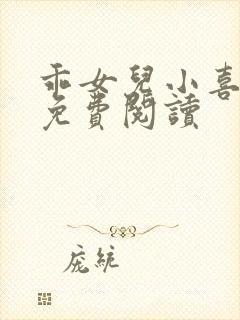 乖女兒小喜
免費閱讀
庞統